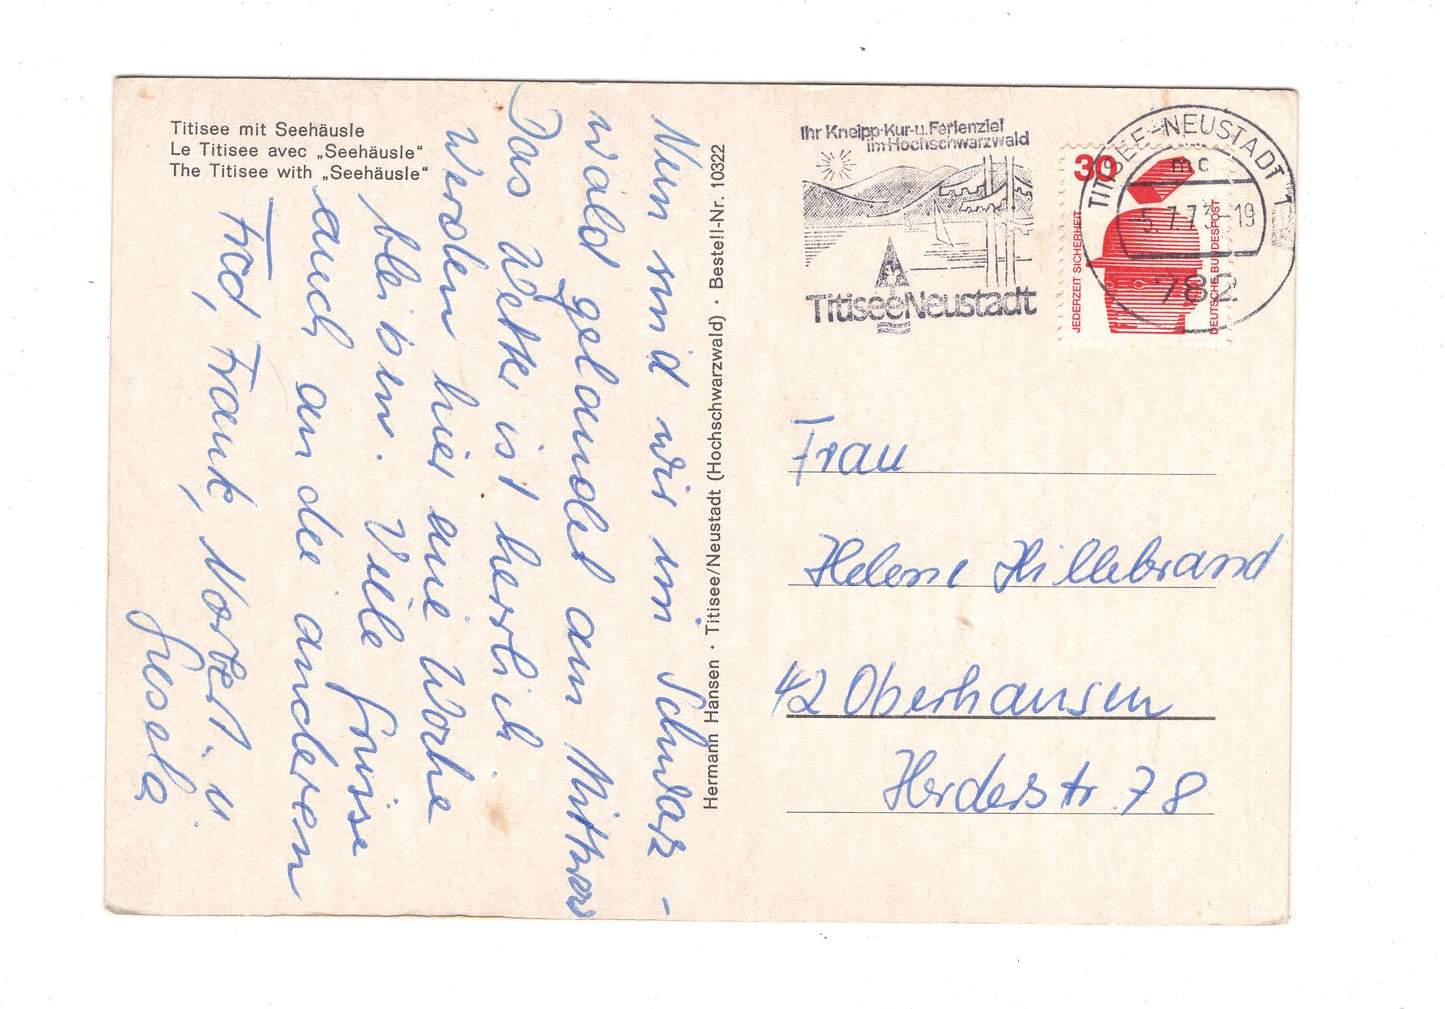 Titisee mit Seehäusle
Le Titisee avec „Seehäusle“
The Titisee with „Seehäusle“
Nun sind wir im Schwarz-
wald gelandet am Mittwoch
Das Wetter ist herrlich.
Werden hier eine Woche
bleiben. Viele Grüsse
auch an die anderen
Frank, Norbert. u.
Gisela
Hermann Hansen · Titisee/Neustadt (Hochschwarzwald) · Bestell-Nr. 10322
Ihr Kneipp-Kur-u. Ferienziel
im Hochschwarzwald
Titisee Neustadt
30
JEDERZEIT SICHERHEIT
DEUTSCHE BUNDESPOST
TITISEE-NEUSTADT 1
mc
5.7.73-19
782
Frau
Helene Hillebrand
42 Oberhausen
Herderstr. 78